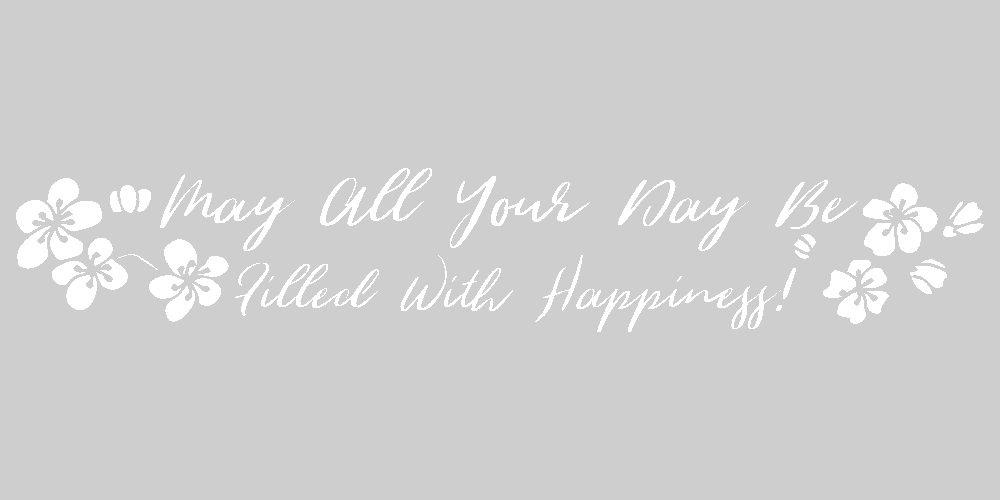 May All Your Day Be
Filled With Happiness!